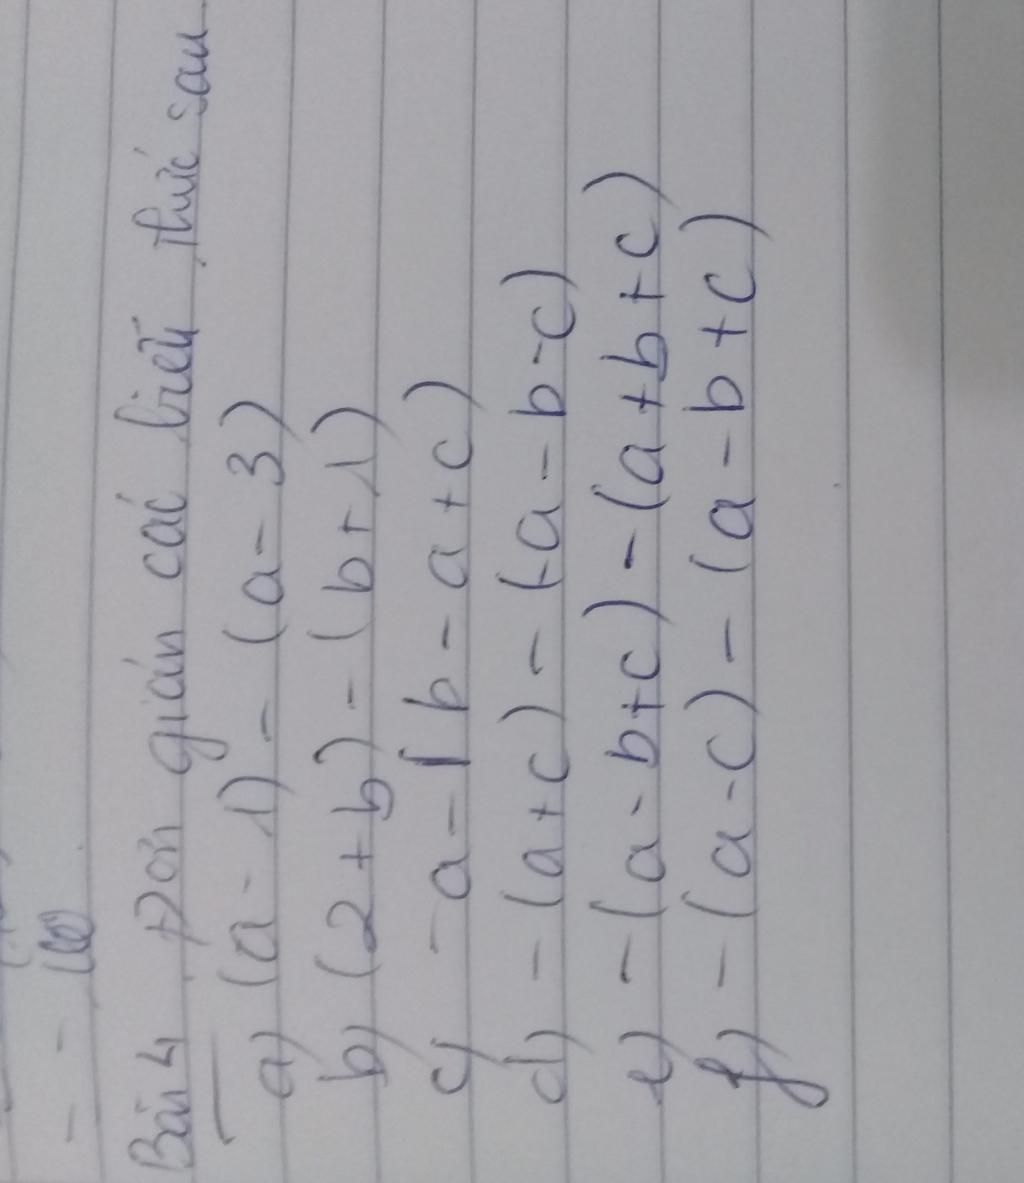 Bài 4 Đơn giản các biểu thức sau
a) (a - 1) - (a - 3)
b) (2 + b) - (b + 1)
c) - a - (b - a + c)
d) - (a + c) - (-a - b - c)
e) - (a - b + c) - (a + b + c)
f) - (a - c) - (a - b + c)